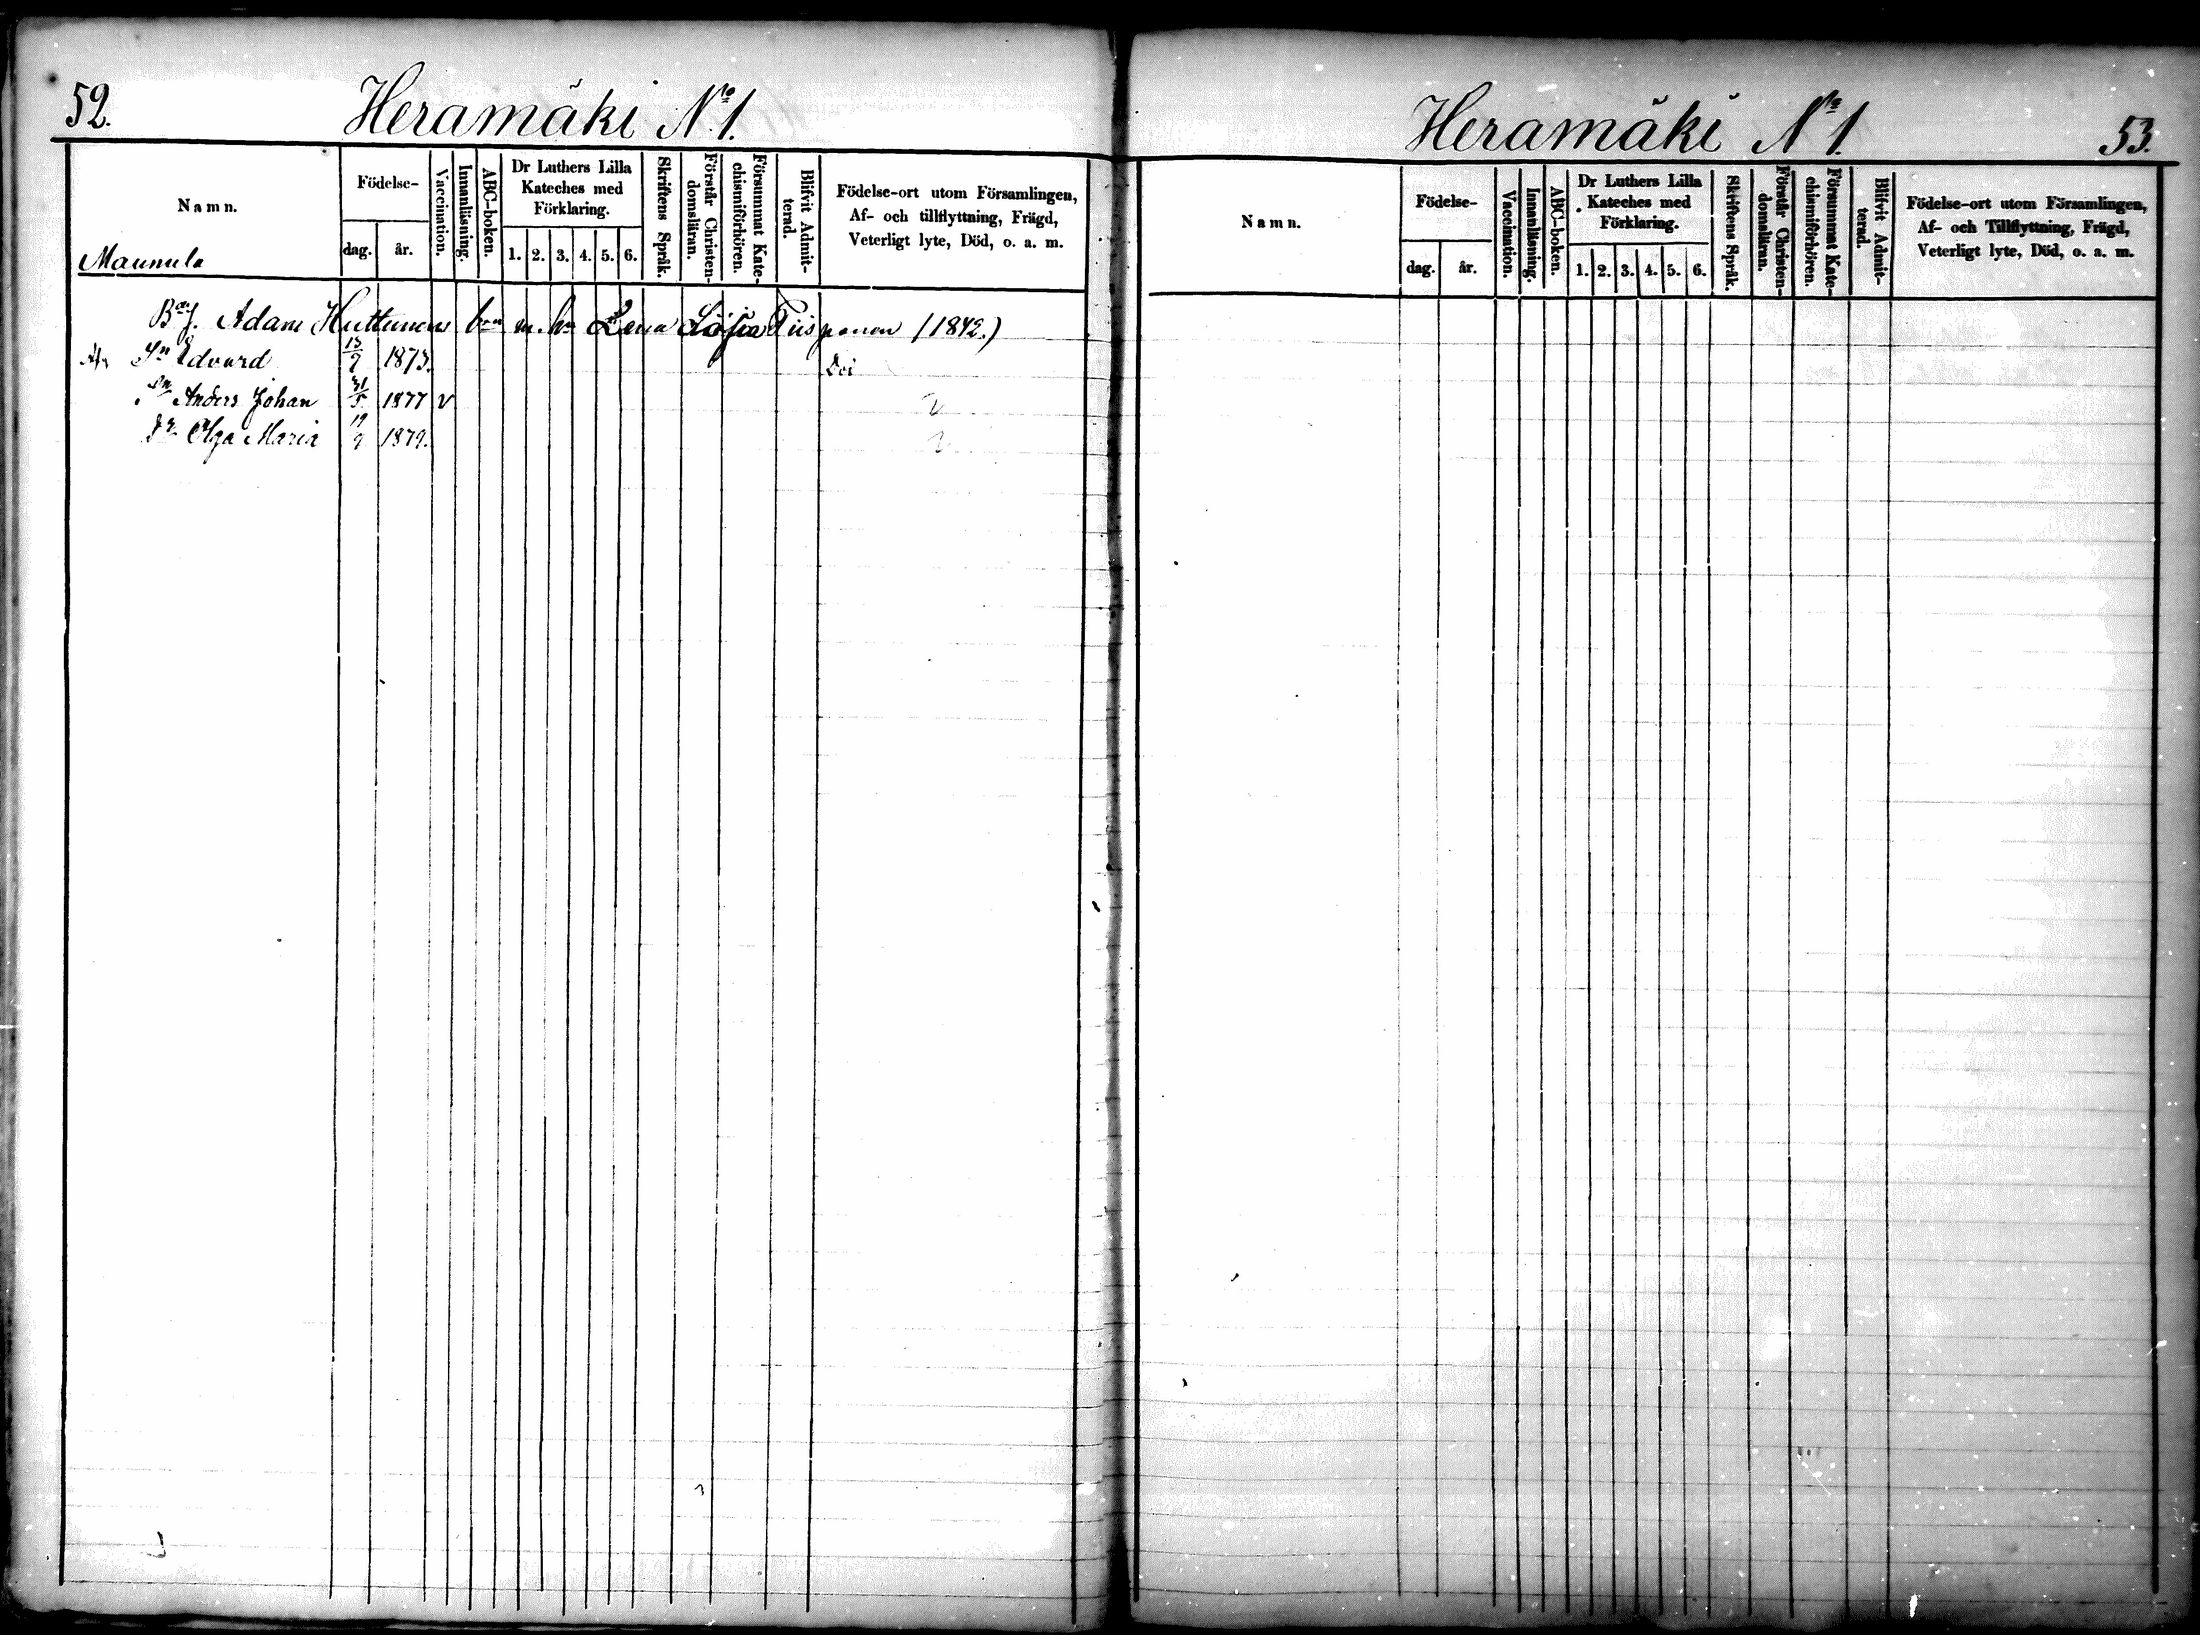 52. Heramäki No 1.
Namn.
Födelse-
dag. år.
Vaccination.
Innanläsning.
ABC-boken.
Dr Luthers Lilla
Kateches med
Förklaring.
1. 2. 3. 4. 5. 6.
Skriftens Språk.
Förstår Christen-
domsläran.
Försummat Kate-
chismiförhören.
Blifvit Admit-
terad.
Födelse-ort utom Församlingen,
Af- och tillflyttning, Frägd,
Veterligt lyte, Död, o. a. m.
Maunula
Adam Huttunens m. h. Lena Sofia Tiisponen (1842.)
Sn Edvard 13/9 1873.
Sn Anders Johan 31/5 1877 v
Dr Olga Maria 19/9 1879.
Heramäki No 1. 53.
Namn.
Födelse-
dag. år.
Vaccination.
Innanläsning.
ABC-boken.
Dr Luthers Lilla
Kateches med
Förklaring.
1. 2. 3. 4. 5. 6.
Skriftens Språk.
Förstår Christen-
domsläran.
Försummat Kate-
chismiförhören.
Blifvit Admit-
terad.
Födelse-ort utom Församlingen,
Af- och Tillflyttning, Frägd,
Veterligt lyte, Död, o. a. m.